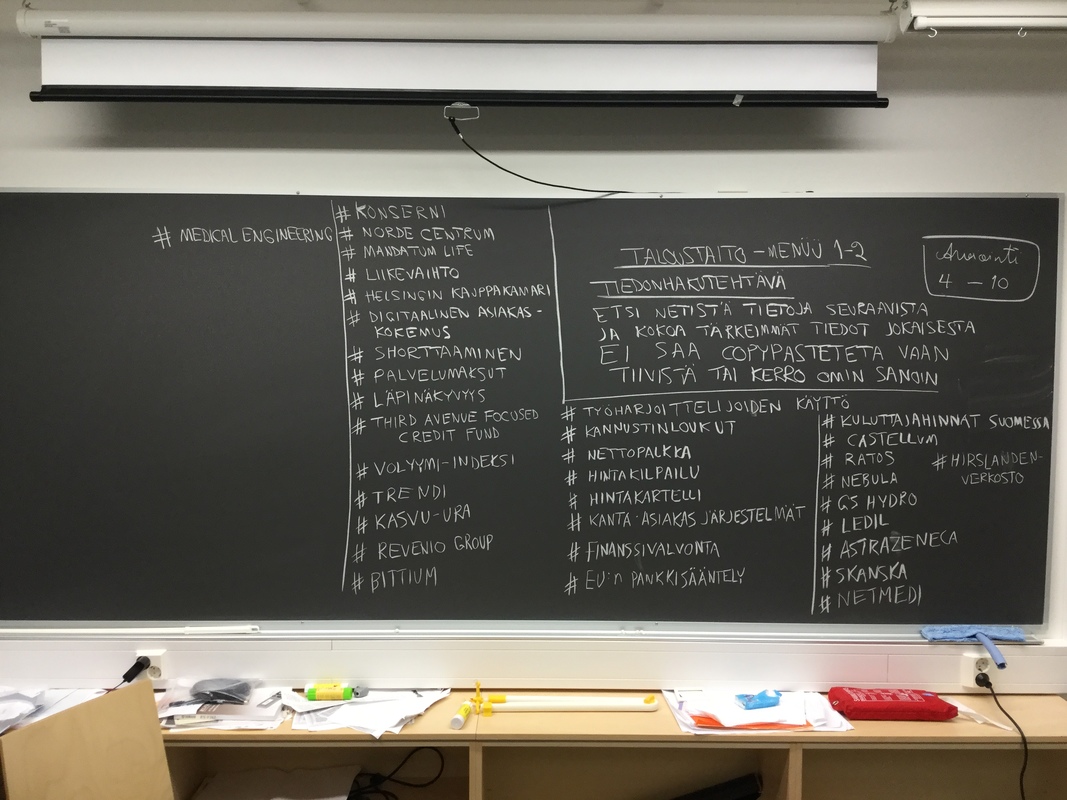 # MEDICAL ENGINEERING
# KONSERNI
# NORDE CENTRUM
# MANDATUM LIFE
# LIIKEVAIHTO
# HELSINGIN KAUPPAKAMARI
# DIGITAALINEN ASIAKAS-
KOKEMUS
# SHORTTAAMINEN
# PALVELUMAKSUT
# LÄPINÄKYVYYS
# THIRD AVENUE FOCUSED
CREDIT FUND
# VOLYYMI-INDEKSI
# TRENDI
# KASVU-URA
# REVENIO GROUP
# BITTIUM
TALOUSTAITO – MENUU 1-2
TIEDONHAKUTEHTÄVÄ
ETSI NETISTÄ TIETOJA SEURAAVISTA
JA KOKOA TÄRKEIMMÄT TIEDOT JOKAISESTA
EI SAA COPYPASTETETA VAAN
TIIVISTÄ TAI KERRO OMIN SANOIN
Arviointi
4 – 10
# TYÖHARJOITTELIJOIDEN KÄYTTÖ
# KANNUSTINLOUKUT
# NETTOPALKKA
# HINTAKILPAILU
# HINTAKARTELLI
# KANTA-ASIAKASJÄRJESTELMÄT
# FINANSSIVALVONTA
# EU:n PANKKISÄÄNTELY
# KULUTTAJAHINNAT SUOMESSA
# CASTELLUM
# RATOS
# NEBULA
# GS HYDRO
# LEDIL
# ASTRAZENECA
# SKANSKA
# NETMEDI
# HIRSLANDEN-
VERKOSTO